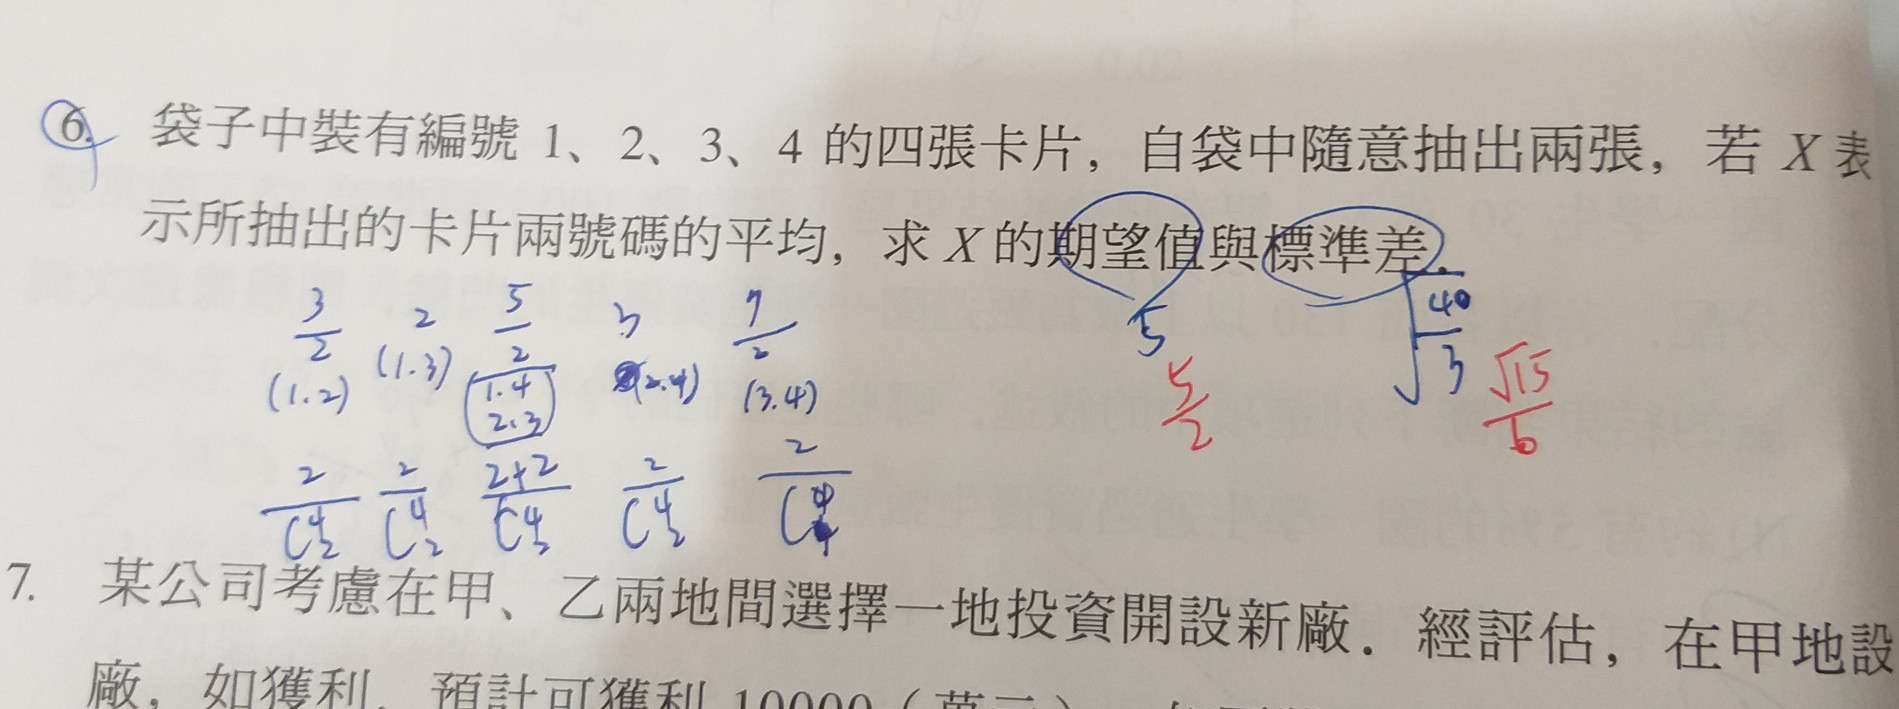 6. 袋子中裝有編號 1、2、3、4 的四張卡片，自袋中隨意抽出兩張，若 X 表
示所抽出的卡片兩號碼的平均，求 X 的期望值與標準差．
3/2 2 5/2 3 7/2
(1.2) (1.3) 1.4 (2.4) (3.4)
2.3
5 √(40/3)
5/2 √15/6
2/C⁴₂ 2/C⁴₂ 2+2/C⁴₂ 2/C⁴₂ 2/C⁴
7. 某公司考慮在甲、乙兩地間選擇一地投資開設新廠．經評估，在甲地設
廠，如獲利，預計可獲利 10000（萬元）